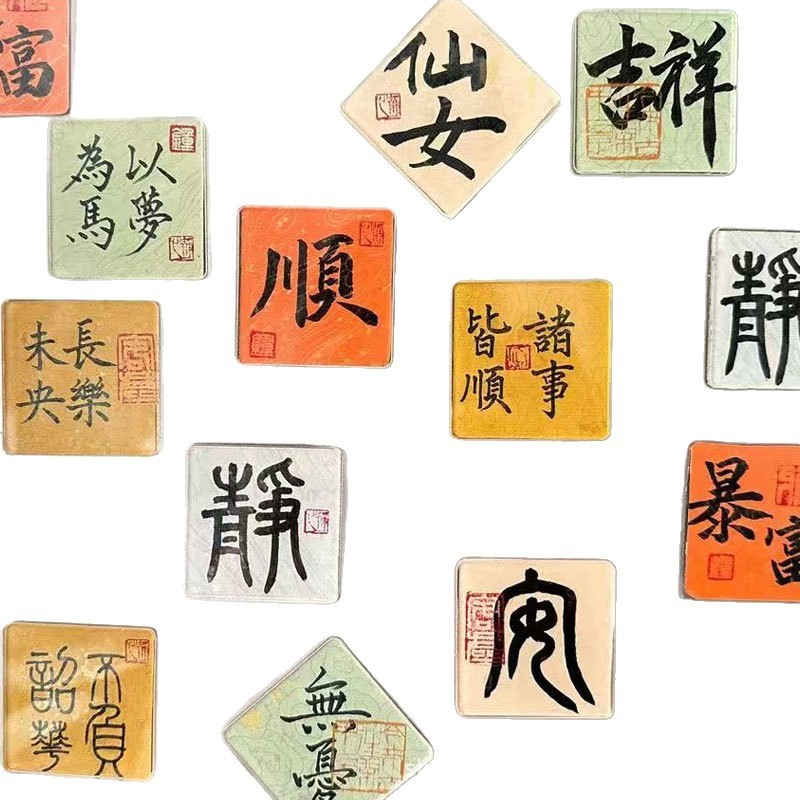 富
仙女
吉祥
以夢
為馬
順
靜
長樂
未央
諸事
皆順
暴富
靜
安
不負
韶華
無憂